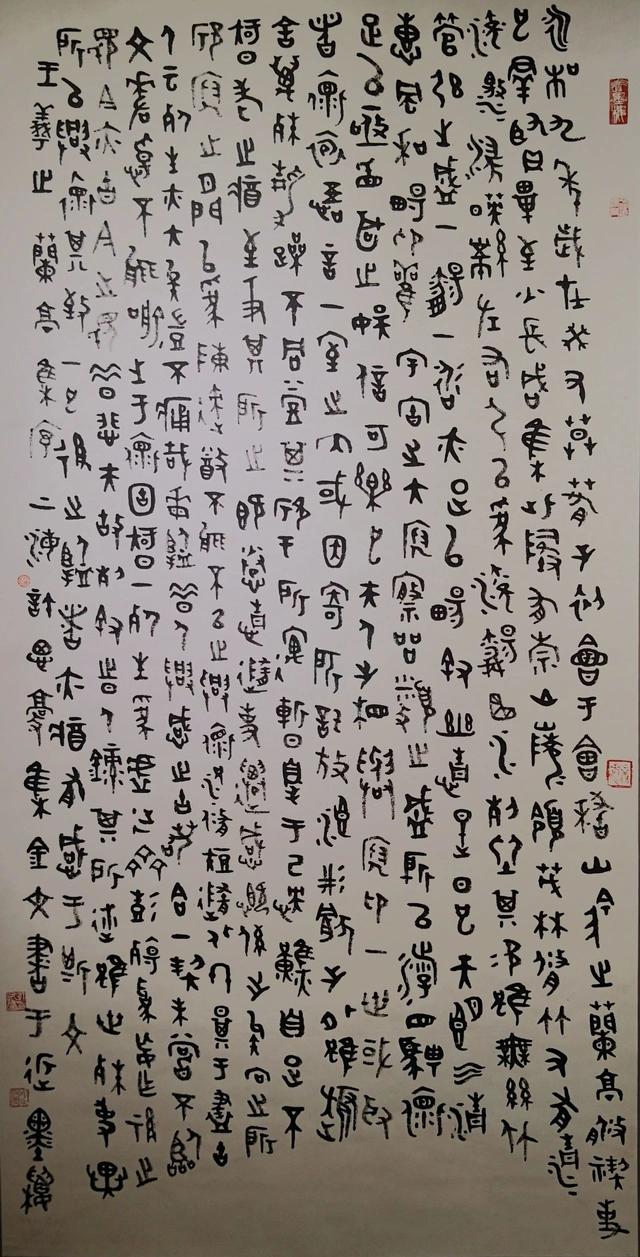 永和九年歲在癸丑暮春之初會于會稽山陰之蘭亭脩禊事
也群賢畢至少長咸集此地有崇山峻領茂林脩竹又有清
流激湍暎帶左右引以為流觴曲水列坐其次雖無絲竹
管弦之盛一觴一詠亦足以暢敘幽情是日也天朗氣清
惠風和暢仰觀宇宙之大俯察品類之盛所以遊目騁懷
足以極視聽之娛信可樂也夫人之相與俯仰一世或取
諸懷抱悟言一室之內或因寄所託放浪形骸之外雖趣
舍萬殊靜躁不同當其欣于所遇暫得于己快然自足不
知老之將至及其所之既惓情隨事遷感慨係之矣向之所
欣俛仰之間以為陳迹猶不能不以之興懷況脩短隨化終期于盡古
人云死生亦大矣豈不痛哉每攬昔人興感之由若合一契未嘗不臨
文嗟悼不能喻之于懷固知一死生為虛誕齊彭殤為妄作後之
視今亦由今之視昔悲夫故列敘時人錄其所述雖世殊事異
所以興懷其致一也後之攬者亦將有感于斯文
王羲之蘭亭集序 集金文書于墨